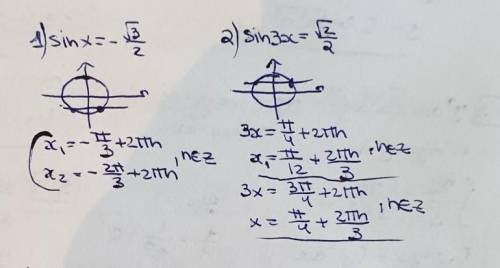 1) sinx = -√3/2
x₁ = -π/3 + 2πn
x₂ = -2π/3 + 2πn , n∈Z
2) sin3x = √2/2
3x = π/4 + 2πn
x₁ = π/12 + 2πn/3 , n∈Z
3x = 3π/4 + 2πn
x = π/4 + 2πn/3 , n∈Z